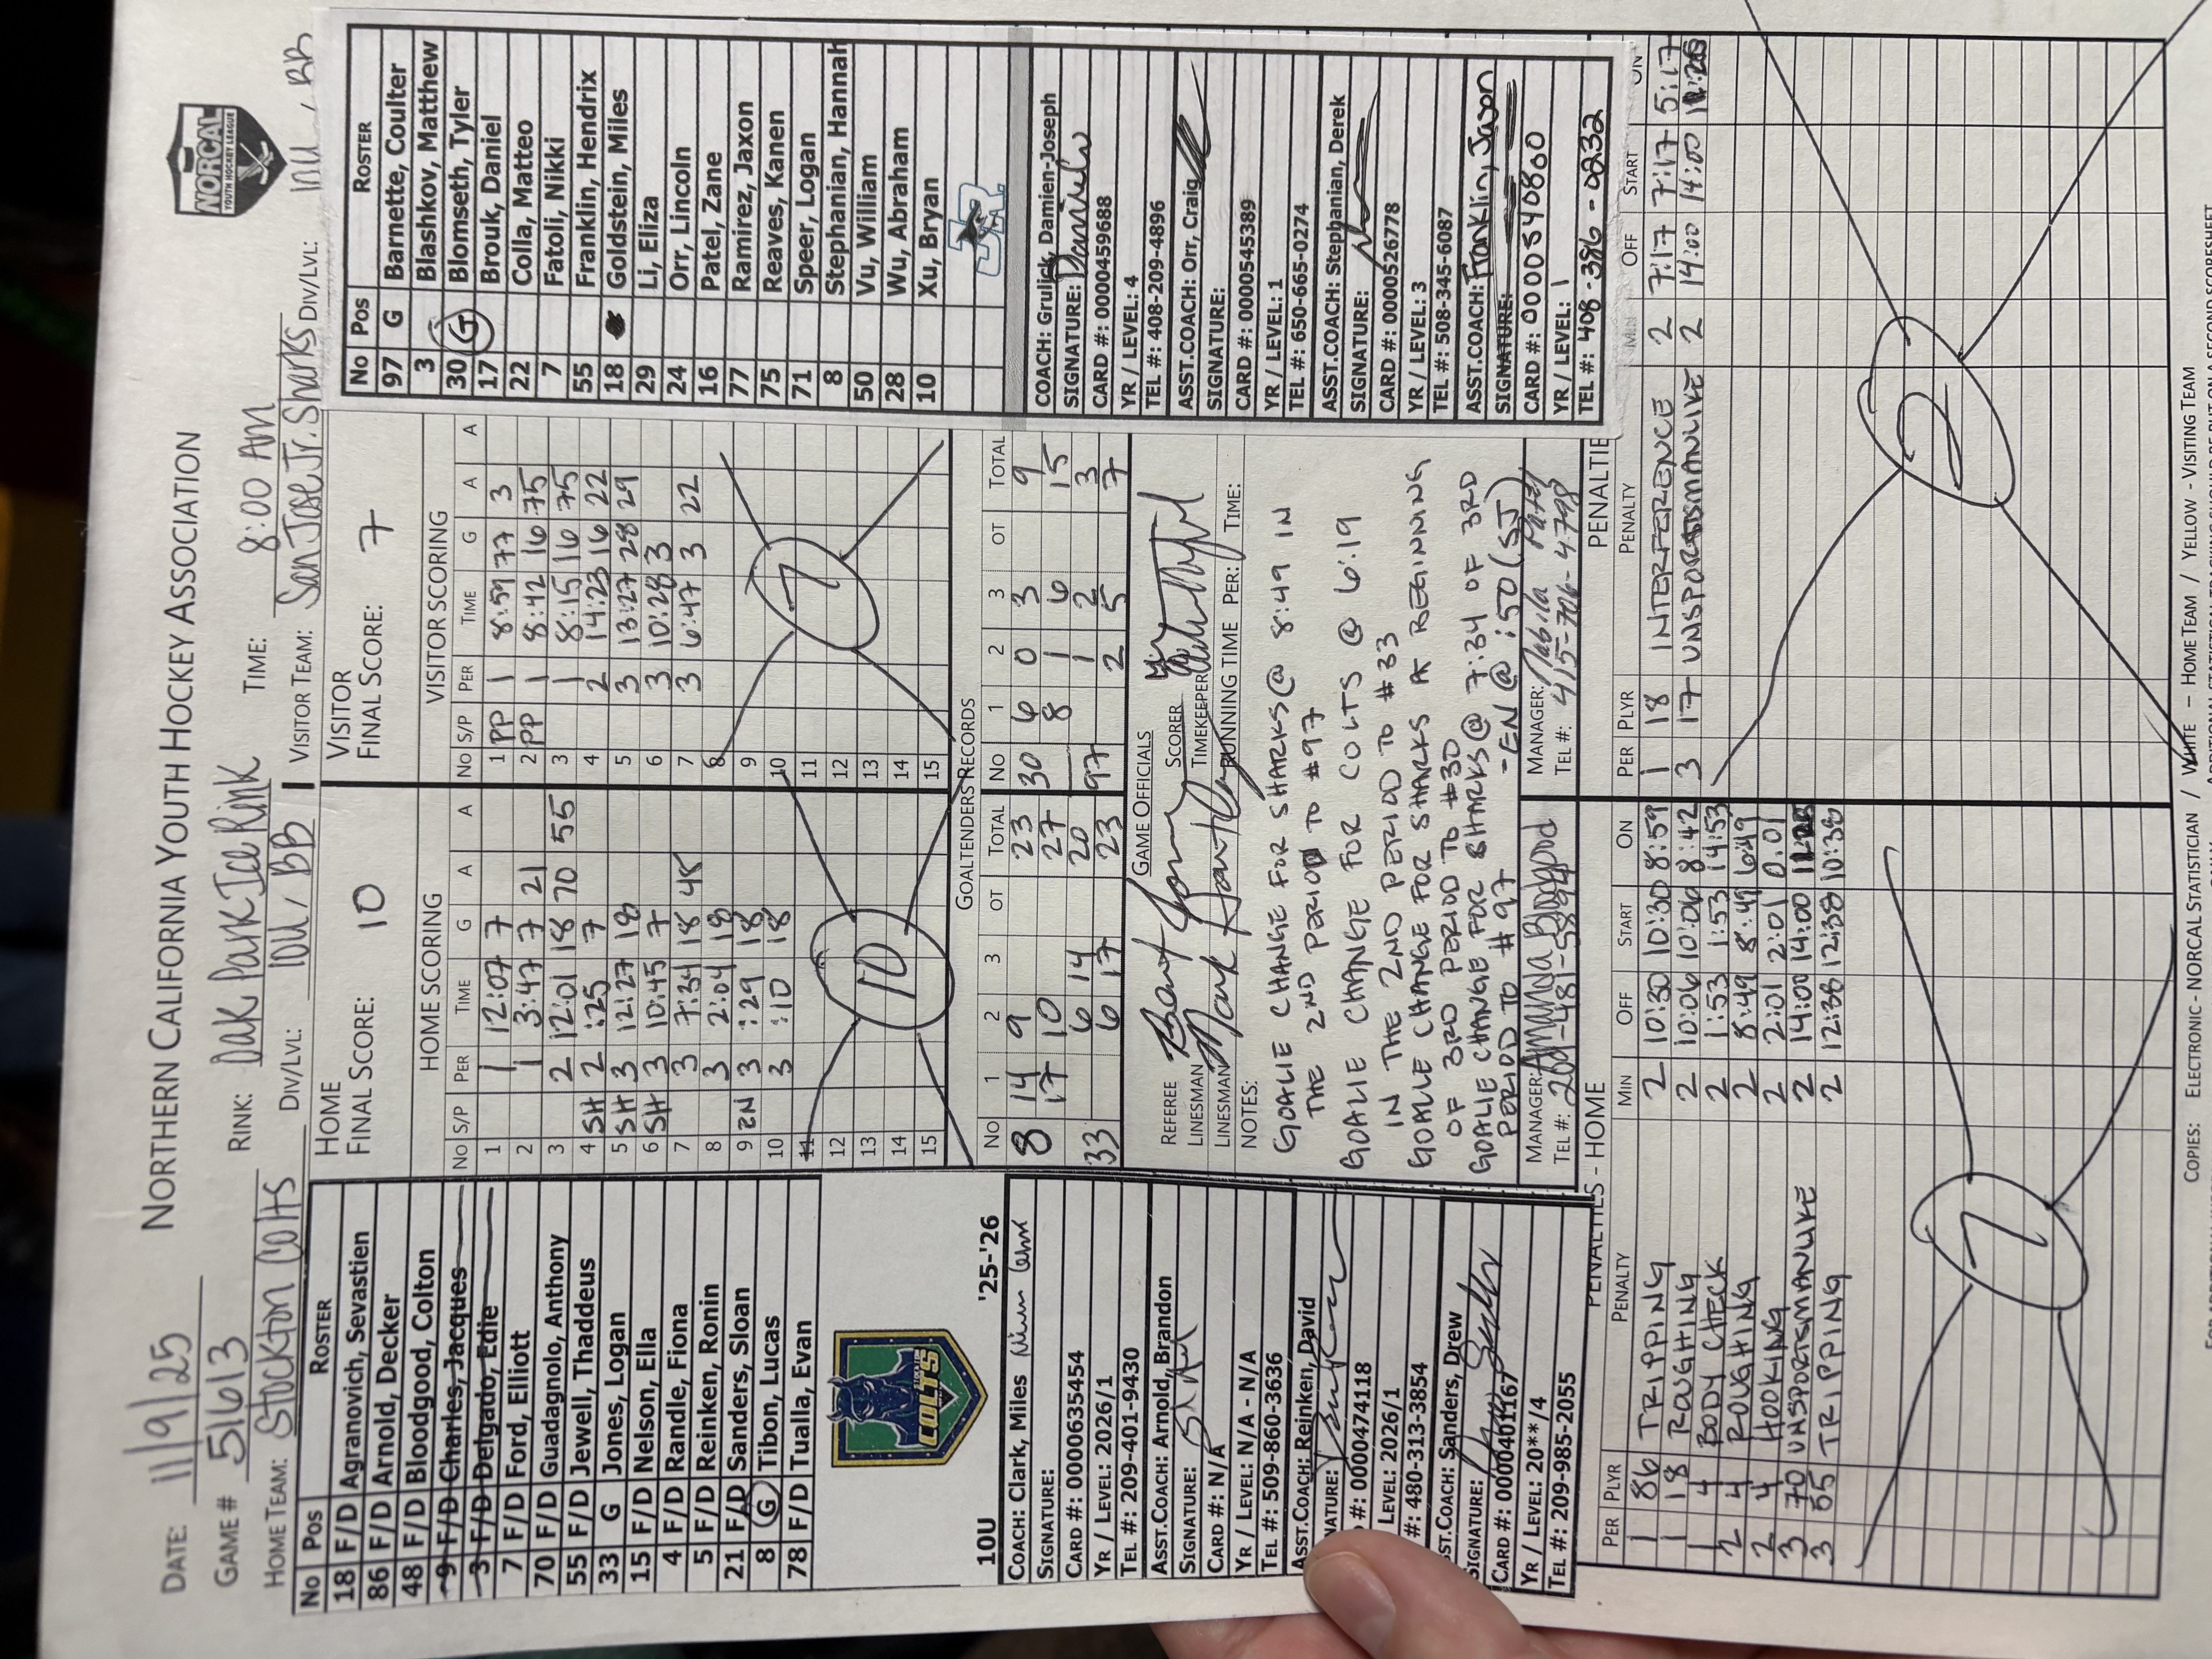 DATE: 11/9/25
NORTHERN CALIFORNIA YOUTH HOCKEY ASSOCIATION
NORCAL
YOUTH HOCKEY LEAGUE
GAME # 51613
RINK: Oak Park Ice Rink
TIME: 8:00 AM
HOME TEAM: Stockton Colts
DIV/LVL: 10U / BB
VISITOR TEAM: San Jose Jr. Sharks
DIV/LVL: 10U / BB
No Pos ROSTER
18 F/D Agranovich, Sevastien
86 F/D Arnold, Decker
48 F/D Bloodgood, Colton
9 F/D Charles, Jacques
3 F/D Delgado, Edie
7 F/D Ford, Elliott
70 F/D Guadagnolo, Anthony
55 F/D Jewell, Thaddeus
33 G Jones, Logan
15 F/D Nelson, Ella
4 F/D Randle, Fiona
5 F/D Reinken, Ronin
21 F/D Sanders, Sloan
8 G Tibon, Lucas
78 F/D Tualla, Evan
STOCKTON
COLTS
10U '25-'26
COACH: Clark, Miles
SIGNATURE:
CARD #: 0000635454
YR / LEVEL: 2026/1
TEL #: 209-401-9430
ASST.COACH: Arnold, Brandon
SIGNATURE:
CARD #: N/A
YR / LEVEL: N/A - N/A
TEL #: 509-860-3636
ASST.COACH: Reinken, David
NATURE:
#: 0000474118
LEVEL: 2026/1
#: 480-313-3854
SST.COACH: Sanders, Drew
SIGNATURE:
CARD #: 0000401167
YR / LEVEL: 20**/4
TEL #: 209-985-2055
HOME
FINAL SCORE: 10
HOME SCORING
No S/P PER TIME G A A
1 1 12:07 7
2 1 3:47 7 21
3 2 12:01 18 70 55
4 SH 2 :25 7
5 SH 3 12:27 18
6 SH 3 10:45 7
7 3 7:34 18 48
8 3 2:04 18
9 EN 3 :29 18
10 3 :10 18
11
12
13
14
15
10
VISITOR
FINAL SCORE: 7
VISITOR SCORING
No S/P PER TIME G A A
1 PP 1 8:59 77 3
2 PP 1 8:42 16 75
3 1 8:15 16 75
4 2 14:23 16 22
5 3 13:27 28 29
6 3 10:28 3
7 3 6:47 3 22
8
9
10
11
12
13
14
15
7
GOALTENDERS RECORDS
No 1 2 3 OT TOTAL
8 14 9 23
17 10 27
33 6 14 20
6 17 23
No 1 2 3 OT TOTAL
30 6 0 3 9
8 1 6 15
97 1 2 3
2 5 7
GAME OFFICIALS
REFEREE
LINESMAN
LINESMAN
SCORER
TIMEKEEPER
RUNNING TIME PER: TIME:
NOTES:
GOALIE CHANGE FOR SHARKS @ 8:49 IN
THE 2ND PERIOD TO #97
GOALIE CHANGE FOR COLTS @ 6:19
IN THE 2ND PERIOD TO #33
GOALIE CHANGE FOR SHARKS A BEGINNING
OF 3RD PERIOD TO #30
GOALIE CHANGE FOR SHARKS @ 7:34 OF 3RD
PERIOD TO #97
-EN @ :50 (SJ)
MANAGER: Amanda Bloodgood
TEL #: 209-481-5894
MANAGER: Patel
TEL #: 415-706-4798
No Pos ROSTER
97 G Barnette, Coulter
3 Blashkov, Matthew
30 G Blomseth, Tyler
17 Brouk, Daniel
22 Colla, Matteo
7 Fatoli, Nikki
55 Franklin, Hendrix
18 Goldstein, Miles
29 Li, Eliza
24 Orr, Lincoln
16 Patel, Zane
77 Ramirez, Jaxon
75 Reaves, Kanen
71 Speer, Logan
8 Stephanian, Hannah
50 Vu, William
28 Wu, Abraham
10 Xu, Bryan
JR.
COACH: Grulick, Damien-Joseph
SIGNATURE:
CARD #: 0000459688
YR / LEVEL: 4
TEL #: 408-209-4896
ASST.COACH: Orr, Craig
SIGNATURE:
CARD #: 0000545389
YR / LEVEL: 1
TEL #: 650-665-0274
ASST.COACH: Stephanian, Derek
SIGNATURE:
CARD #: 0000526778
YR / LEVEL: 3
TEL #: 508-345-6087
ASST.COACH: Franklin, Jason
SIGNATURE:
CARD #: 0000540860
YR / LEVEL: 1
TEL #: 408-386-0232
PENALTIES - HOME
PER PLYR PENALTY MIN OFF START ON
1 86 TRIPPING 2 10:30 10:30 8:59
1 18 ROUGHING 2 10:06 10:06 8:42
1 4 BODY CHECK 2 1:53 1:53 14:53
2 4 ROUGHING 2 8:49 8:49 6:49
2 4 HOOKING 2 2:01 2:01 0.01
3 70 UNSPORTSMANLIKE 2 14:00 14:00
3 55 TRIPPING 2 12:38 12:38 10:38
7
PENALTIE
PER PLYR PENALTY MIN OFF START ON
1 18 INTERFERENCE 2 7:17 7:17 5:17
3 17 UNSPORTSMANLIKE 2 14:00 14:00
2
COPIES: ELECTRONIC - NORCAL STATISTICIAN / WHITE – HOME TEAM / YELLOW - VISITING TEAM